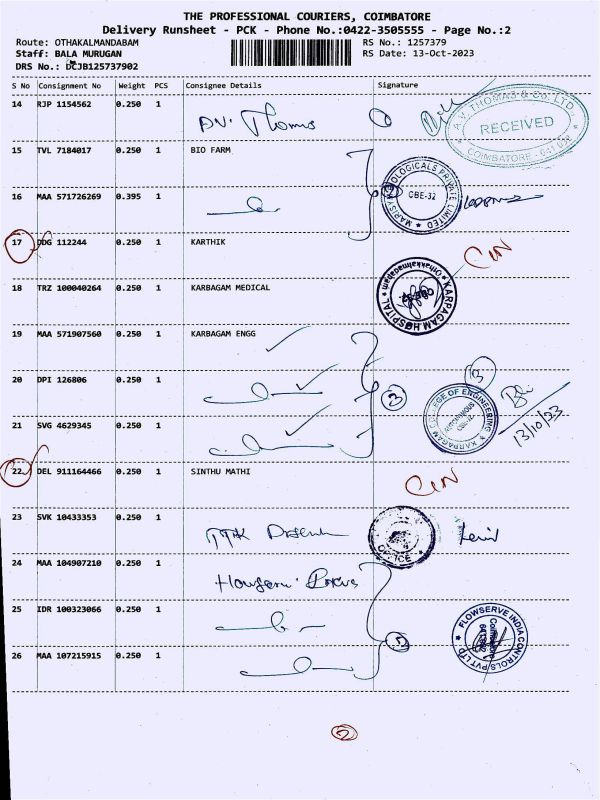 THE PROFESSIONAL COURIERS, COIMBATORE
Delivery Runsheet - PCK - Phone No.:0422-3505555 - Page No.:2
Route: OTHAKALMANDABAM
RS No.: 1257379
Staff: BALA MURUGAN
RS Date: 13-Oct-2023
DRS No.: DCJB125737902
S No Consignment No Weight PCS Consignee Details Signature
14 RJP 1154562 0.250 1
A.V. Thomas
A.V. THOMAS & Co. LTD.
RECEIVED
COIMBATORE - 641 032
15 TVL 7184017 0.250 1 BIO FARM
16 MAA 571726269 0.395 1
BIOLOGICALS PRIVATE LIMITED
CBE-32
17 DDG 112244 0.250 1 KARTHIK
CIN
18 TRZ 100040264 0.250 1 KARBAGAM MEDICAL
KARPAGAM HOSPITAL
Othakalmandapam
CBE-32
19 MAA 571907560 0.250 1 KARBAGAM ENGG
20 DPI 126806 0.250 1
3
KARPAGAM COLLEGE OF ENGINEERING
AUTONOMOUS
CBE-32
13/10/23
21 SVG 4629345 0.250 1
22 DEL 911164466 0.250 1 SINTHU MATHI
CIN
23 SVK 10433353 0.250 1
OFFICE
24 MAA 104907210 0.250 1
25 IDR 100323066 0.250 1
FLOWSERVE INDIA CONTROLS PVT LTD
Coimbatore
26 MAA 107215915 0.250 1
2